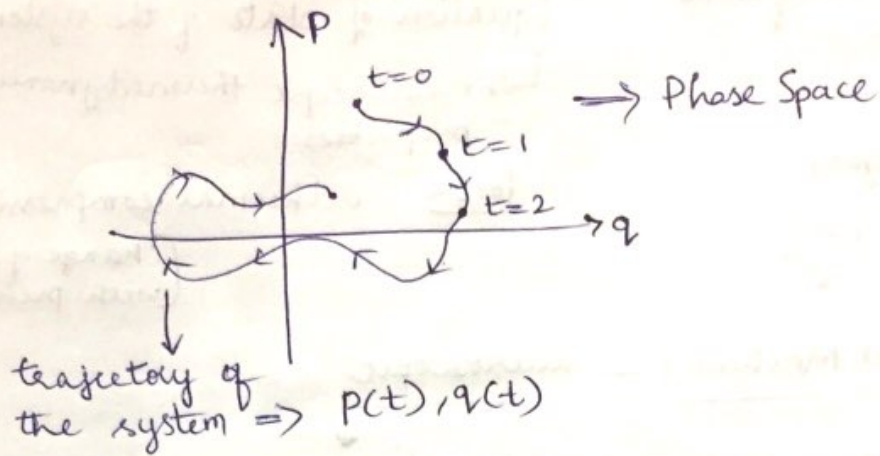 P
t=0
⟹ Phase Space
t=1
t=2
q
trajectory of
the system ⟹ p(t), q(t)